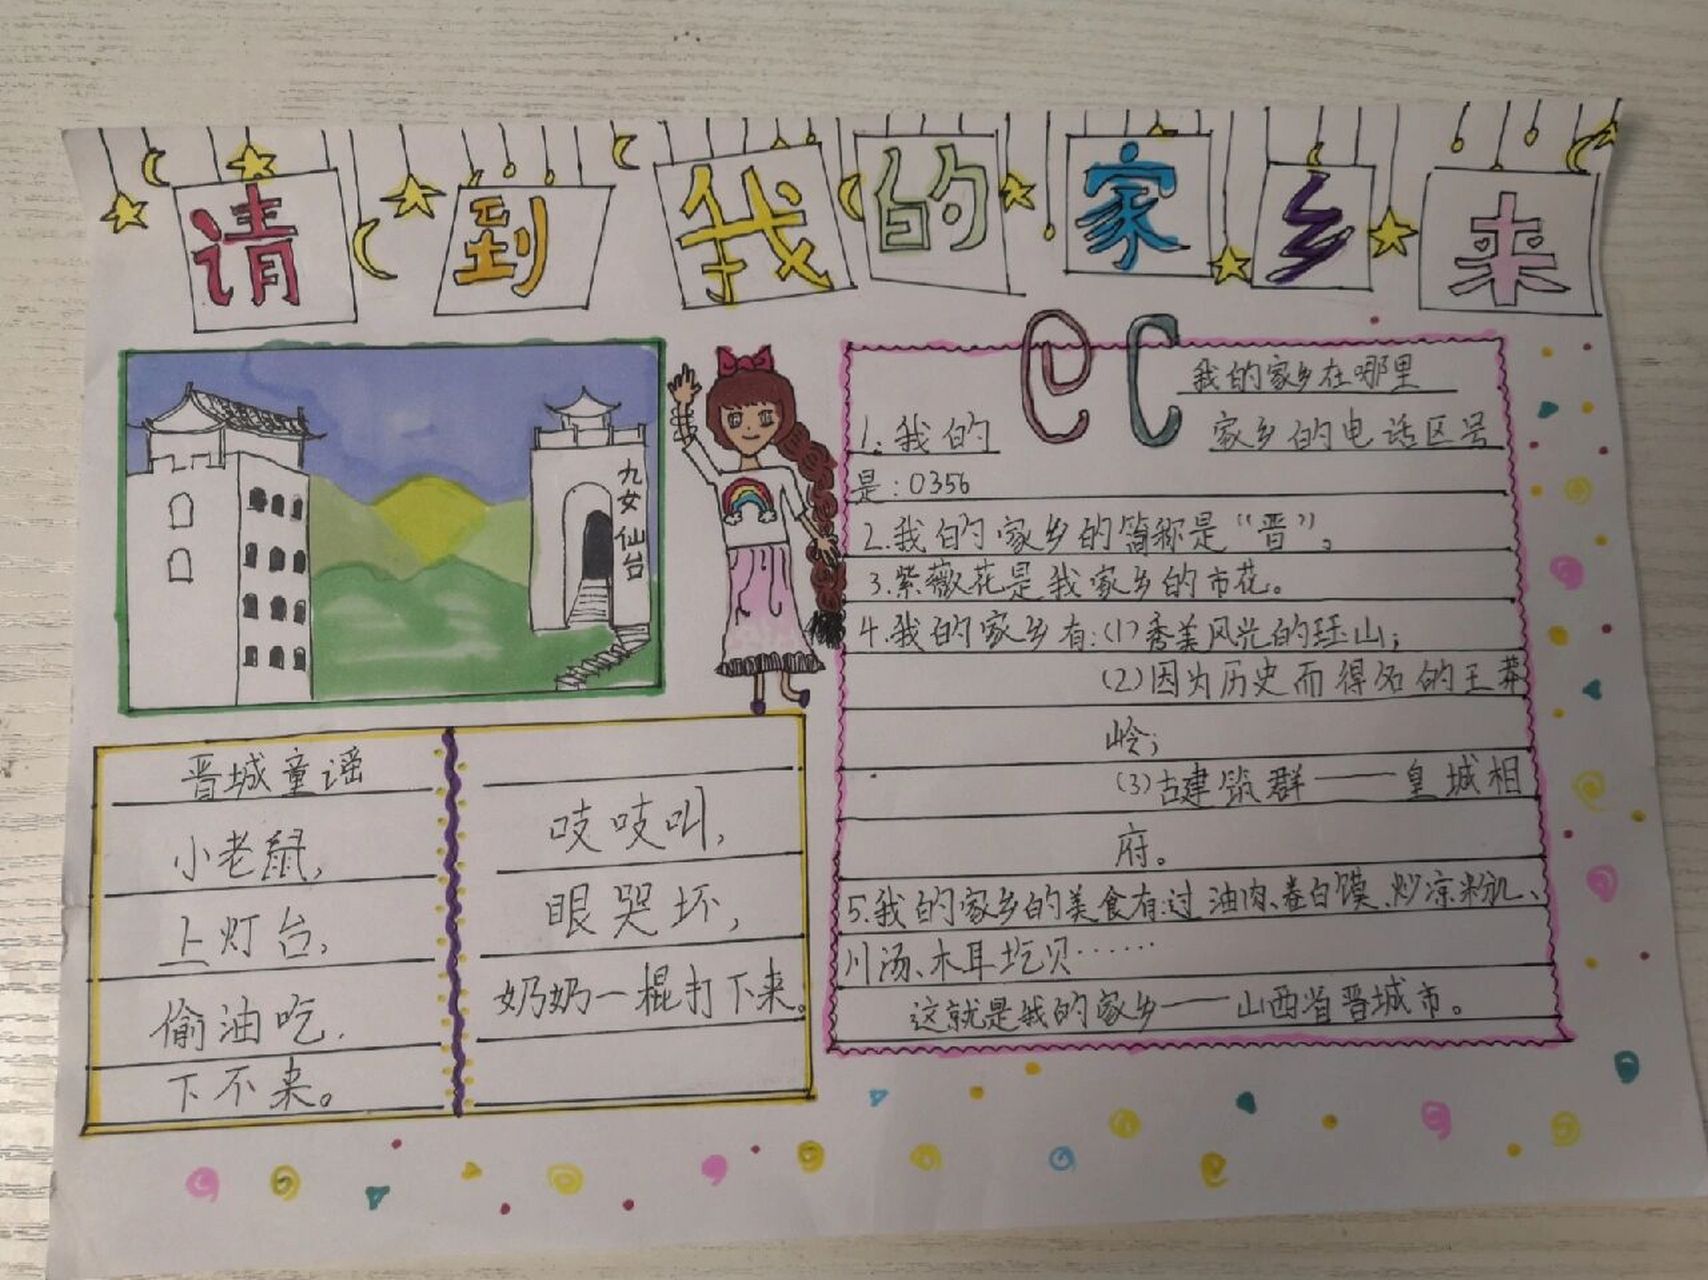 请到我的家乡来
九女仙台
我的家乡在哪里
1.我的家乡的电话区号
是:0356
2.我的家乡的简称是“晋”。
3.紫薇花是我家乡的市花。
4.我的家乡有:(1)秀美风光的珏山;
(2)因为历史而得名的王莽
岭;
(3)古建筑群——皇城相
府。
5.我的家乡的美食有:过油肉、卷白馍、炒凉粉、
川汤、木耳圪贝……
这就是我的家乡——山西省晋城市。
晋城童谣
小老鼠,
上灯台,
偷油吃.
下不来。
吱吱叫,
眼哭坏,
奶奶一棍打下来。